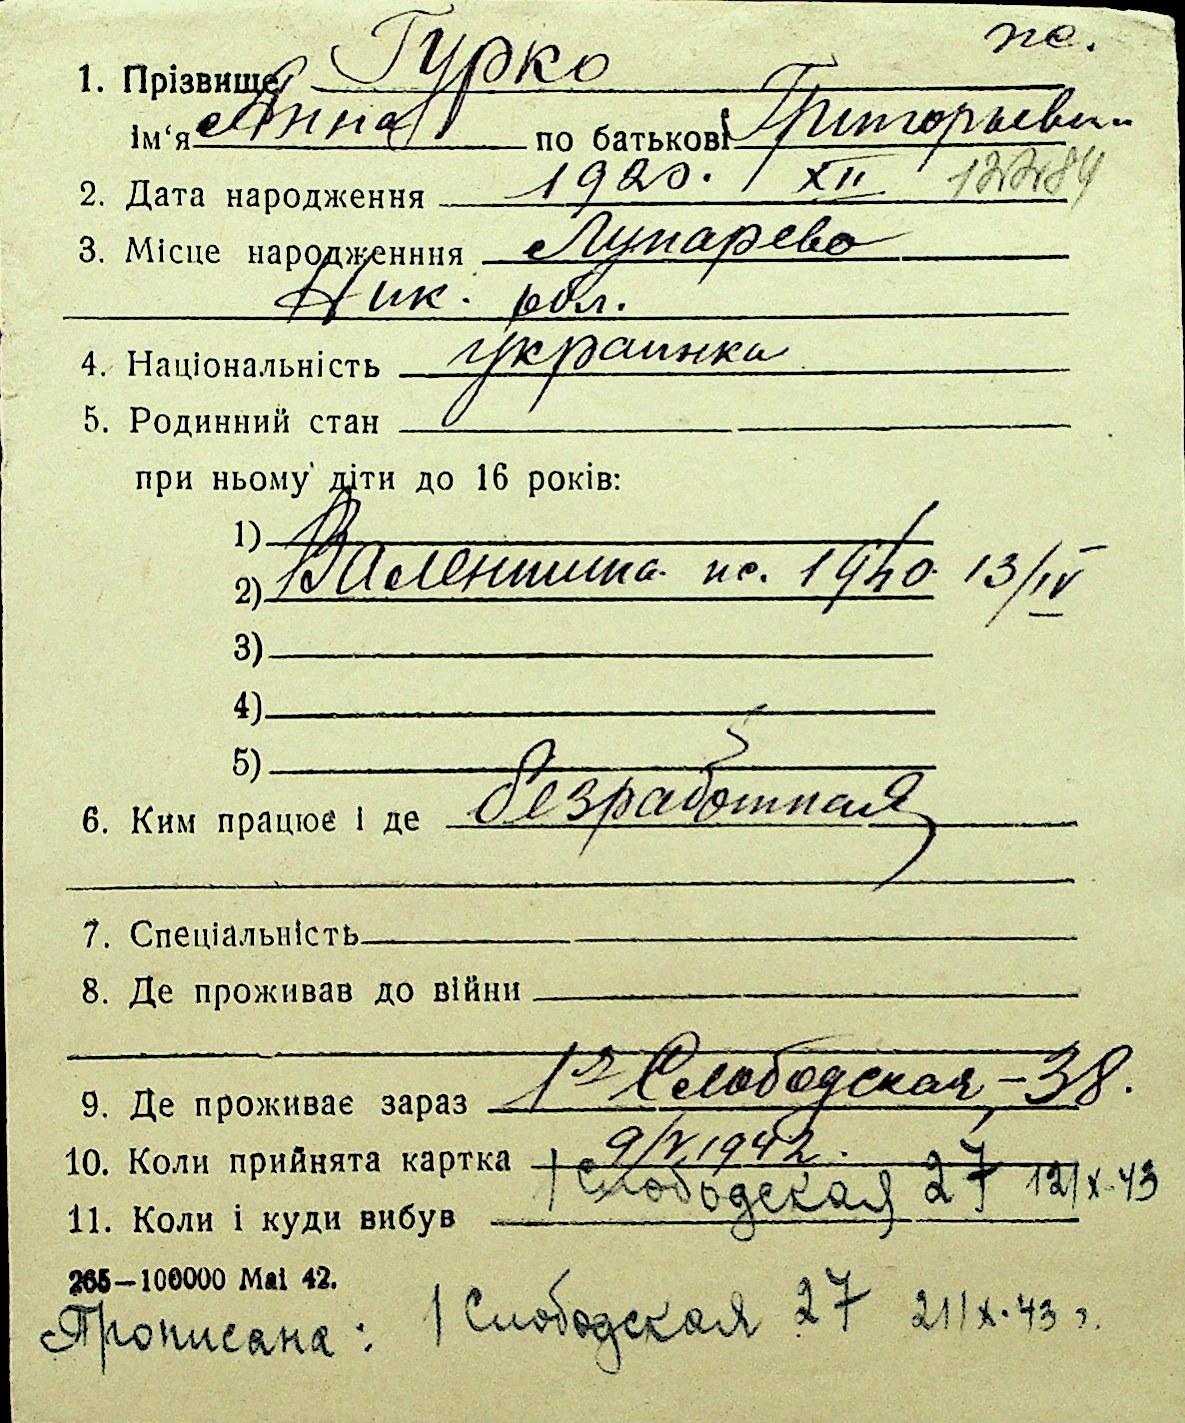 пс.
1. Прізвище Гурко
Ім‘я Анна по батькові Григорьевн
2. Дата народження 1920. XII 12284
3. Місце народженння Лупарево
Ник. обл.
4. Національність украинка
5. Родинний стан
при ньому діти до 16 років:
1)
2) Валентина пс. 1940. 13/IV
3)
4)
5)
6. Ким працює і де безработная
7. Спеціальність
8. Де проживав до війни
9. Де проживає зараз 1я Слободская, – 38.
10. Коли прийнята картка 9/V 1942.
1 Слободская 27 12/X-43
11. Коли і куди вибув
265—100000 Mai 42.
Прописана: 1 Слободская 27 21/X-43 г.